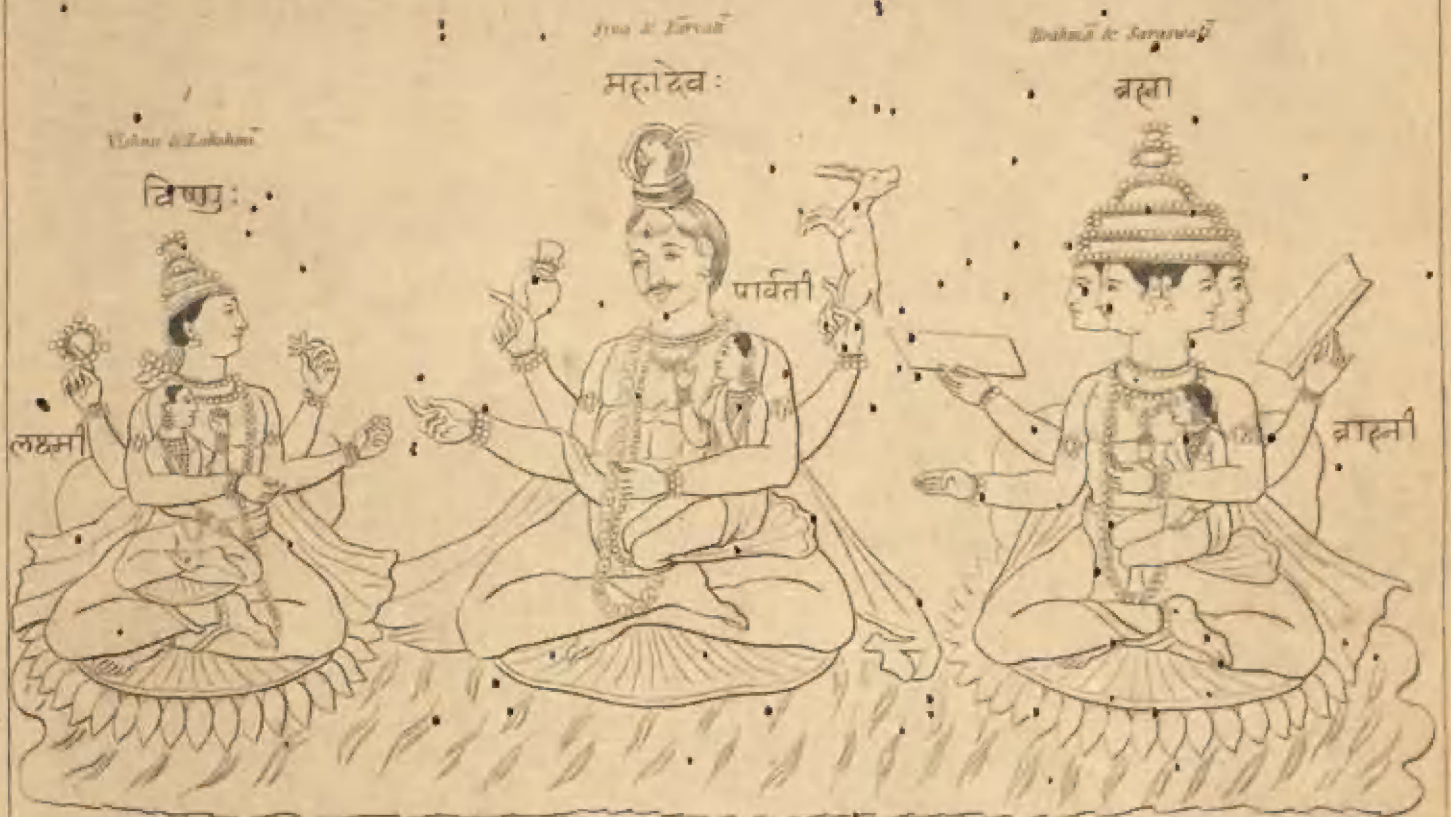 Vishnu & Lakshmī
विष्णुः
लक्ष्मी
Siva & Pārvatī
महादेवः
पार्वती
Brahmā & Saraswatī
ब्रह्मा
ब्राह्मी